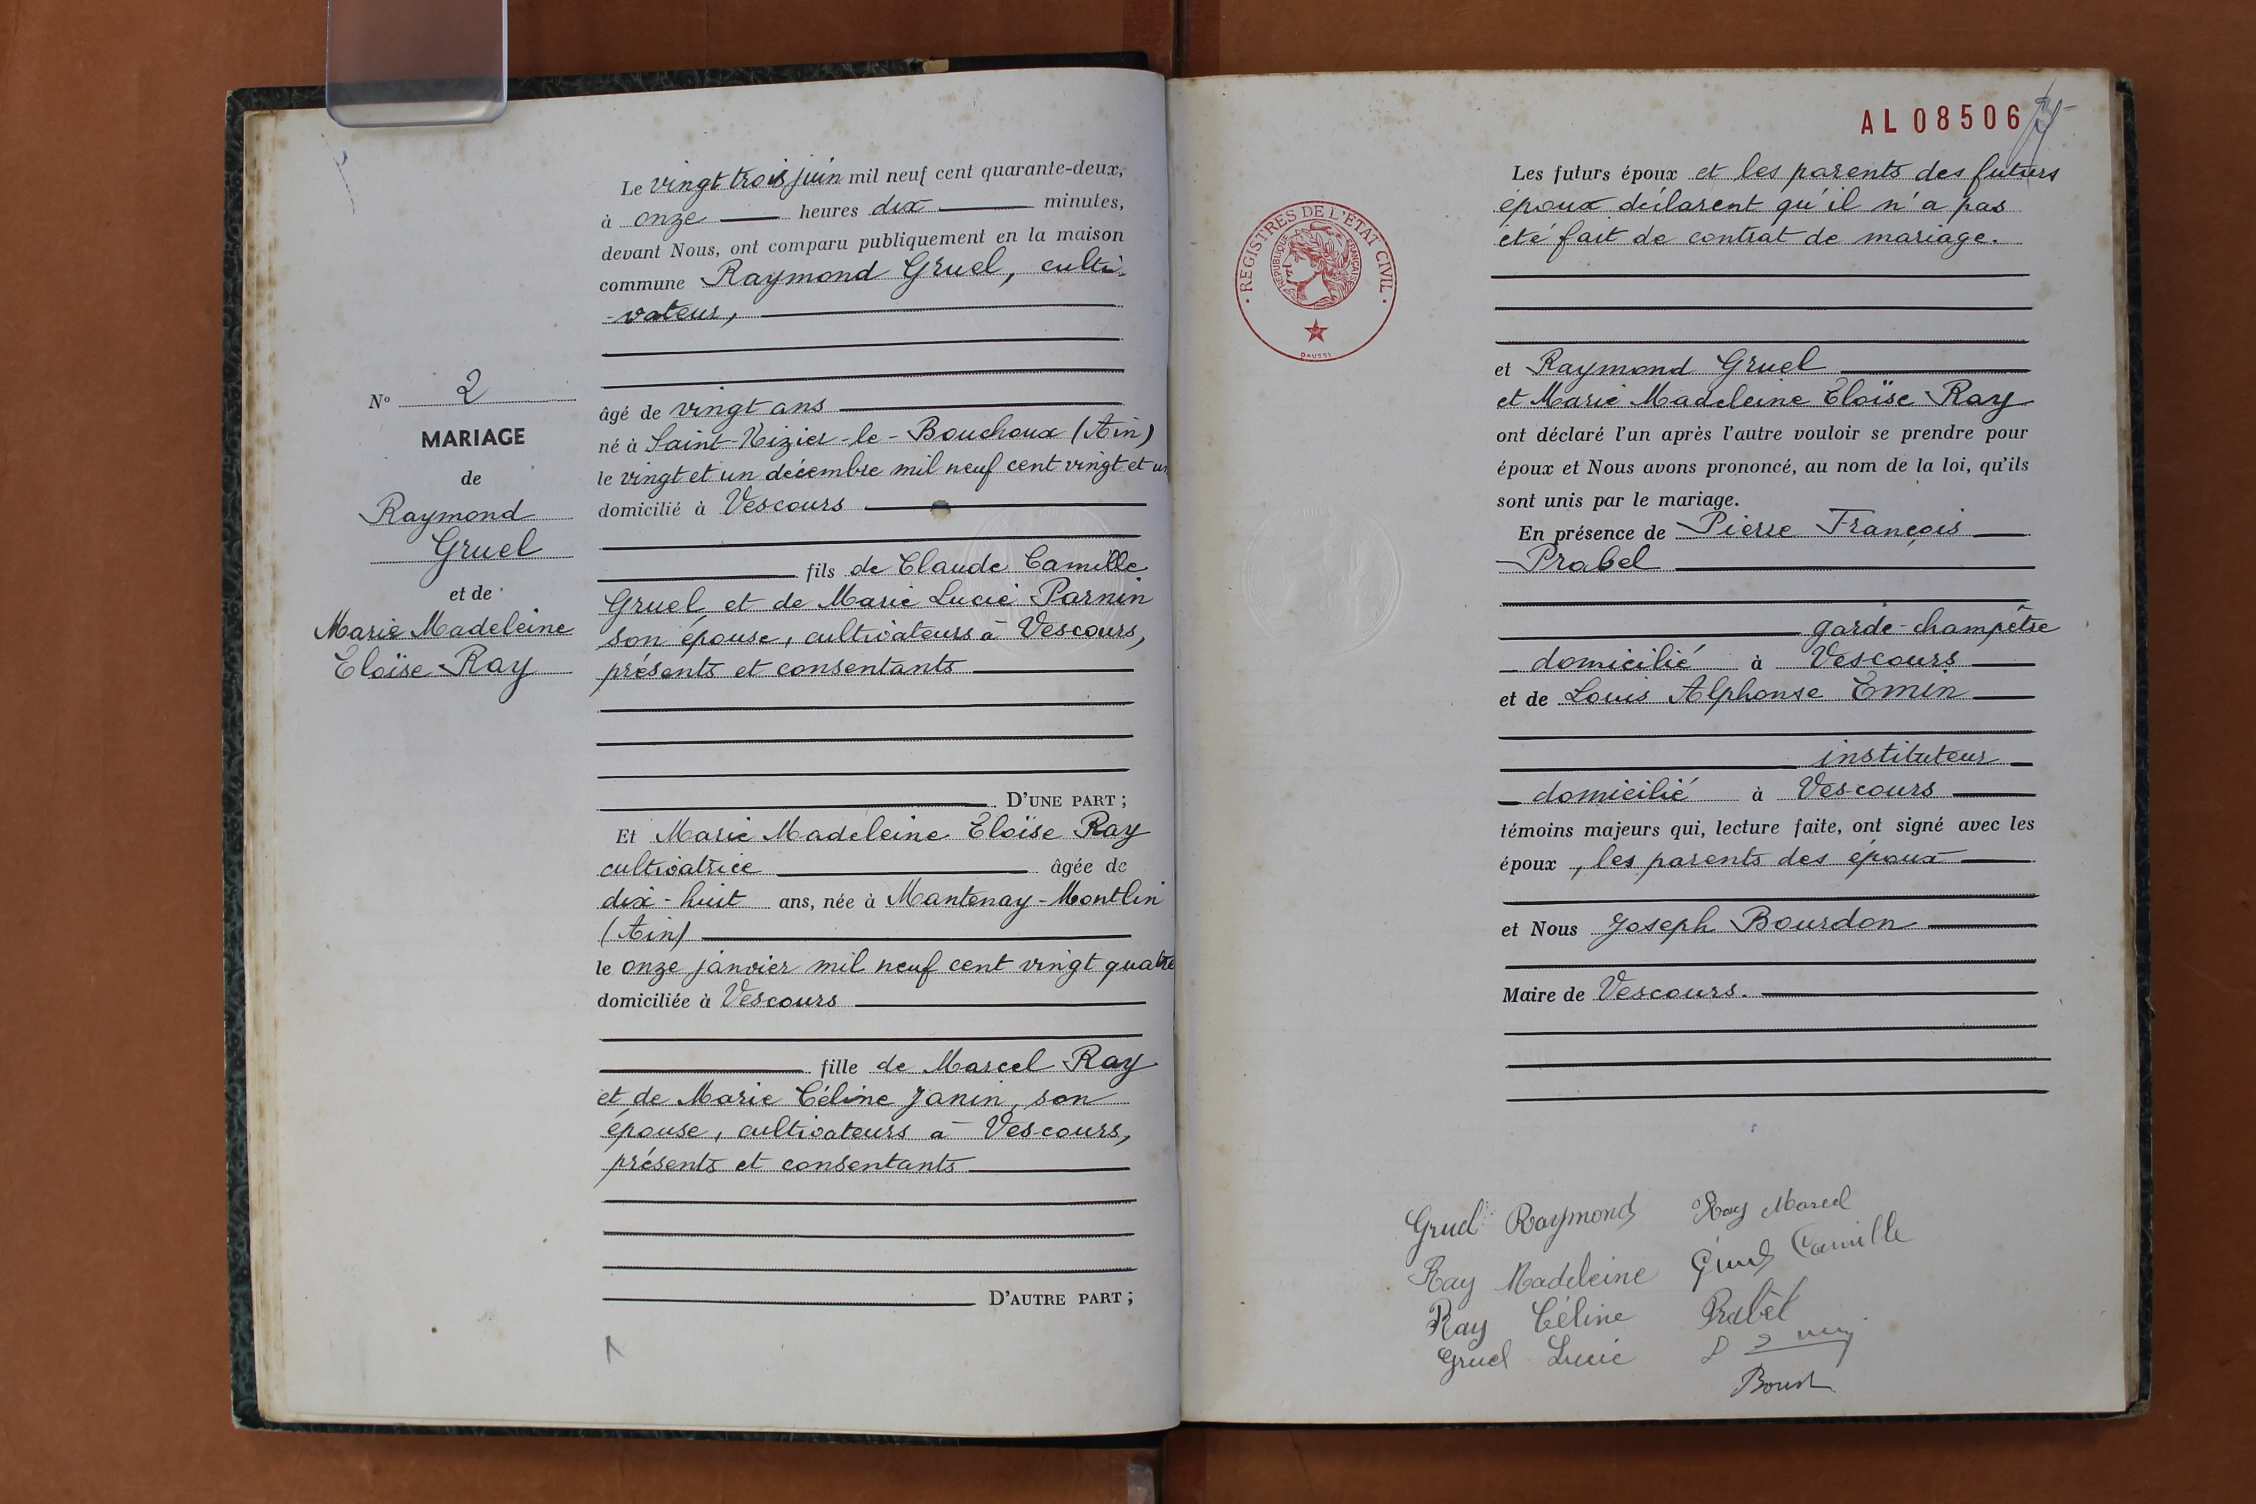 N° 2
MARIAGE
de
Raymond
Gruel
et de
Marie Madeleine
Eloïse Ray
Le vingt trois juin mil neuf cent quarante-deux,
à onze heures dix minutes,
devant Nous, ont comparu publiquement en la maison
commune Raymond Gruel, culti-
-vateur,
âgé de vingt ans
né à Saint-Nizier-le-Bouchoux (Ain)
le vingt et un décembre mil neuf cent vingt et un
domicilié à Vescours
fils de Claude Camille
Gruel et de Marie Lucie Parnin
son épouse, cultivateurs à Vescours,
présents et consentants
D'UNE PART ;
Et Marie Madeleine Eloïse Ray
cultivatrice âgée de
dix-huit ans, née à Mantenay-Montlin
(Ain)
le onze janvier mil neuf cent vingt quatre
domiciliée à Vescours
fille de Marcel Ray
et de Marie Céline Janin, son
épouse, cultivateurs à Vescours,
présents et consentants
D'AUTRE PART ;
AL 08506
REGISTRES DE L'ETAT CIVIL
REPUBLIQUE FRANÇAISE
DAUSSY
Les futurs époux et les parents des futurs
époux déclarent qu'il n'a pas
été fait de contrat de mariage.
et Raymond Gruel
et Marie Madeleine Eloïse Ray
ont déclaré l'un après l'autre vouloir se prendre pour
époux et Nous avons prononcé, au nom de la loi, qu'ils
sont unis par le mariage.
En présence de Pierre François
Prabel
garde-champêtre
domicilié à Vescours
et de Louis Alphonse Emin
instituteur
domicilié à Vescours
témoins majeurs qui, lecture faite, ont signé avec les
époux, les parents des époux
et Nous Joseph Bourdon
Maire de Vescours.
Gruel Raymond Ray Marcel
Ray Madeleine Gruel Camille
Ray Céline Prabel
Gruel Lucie